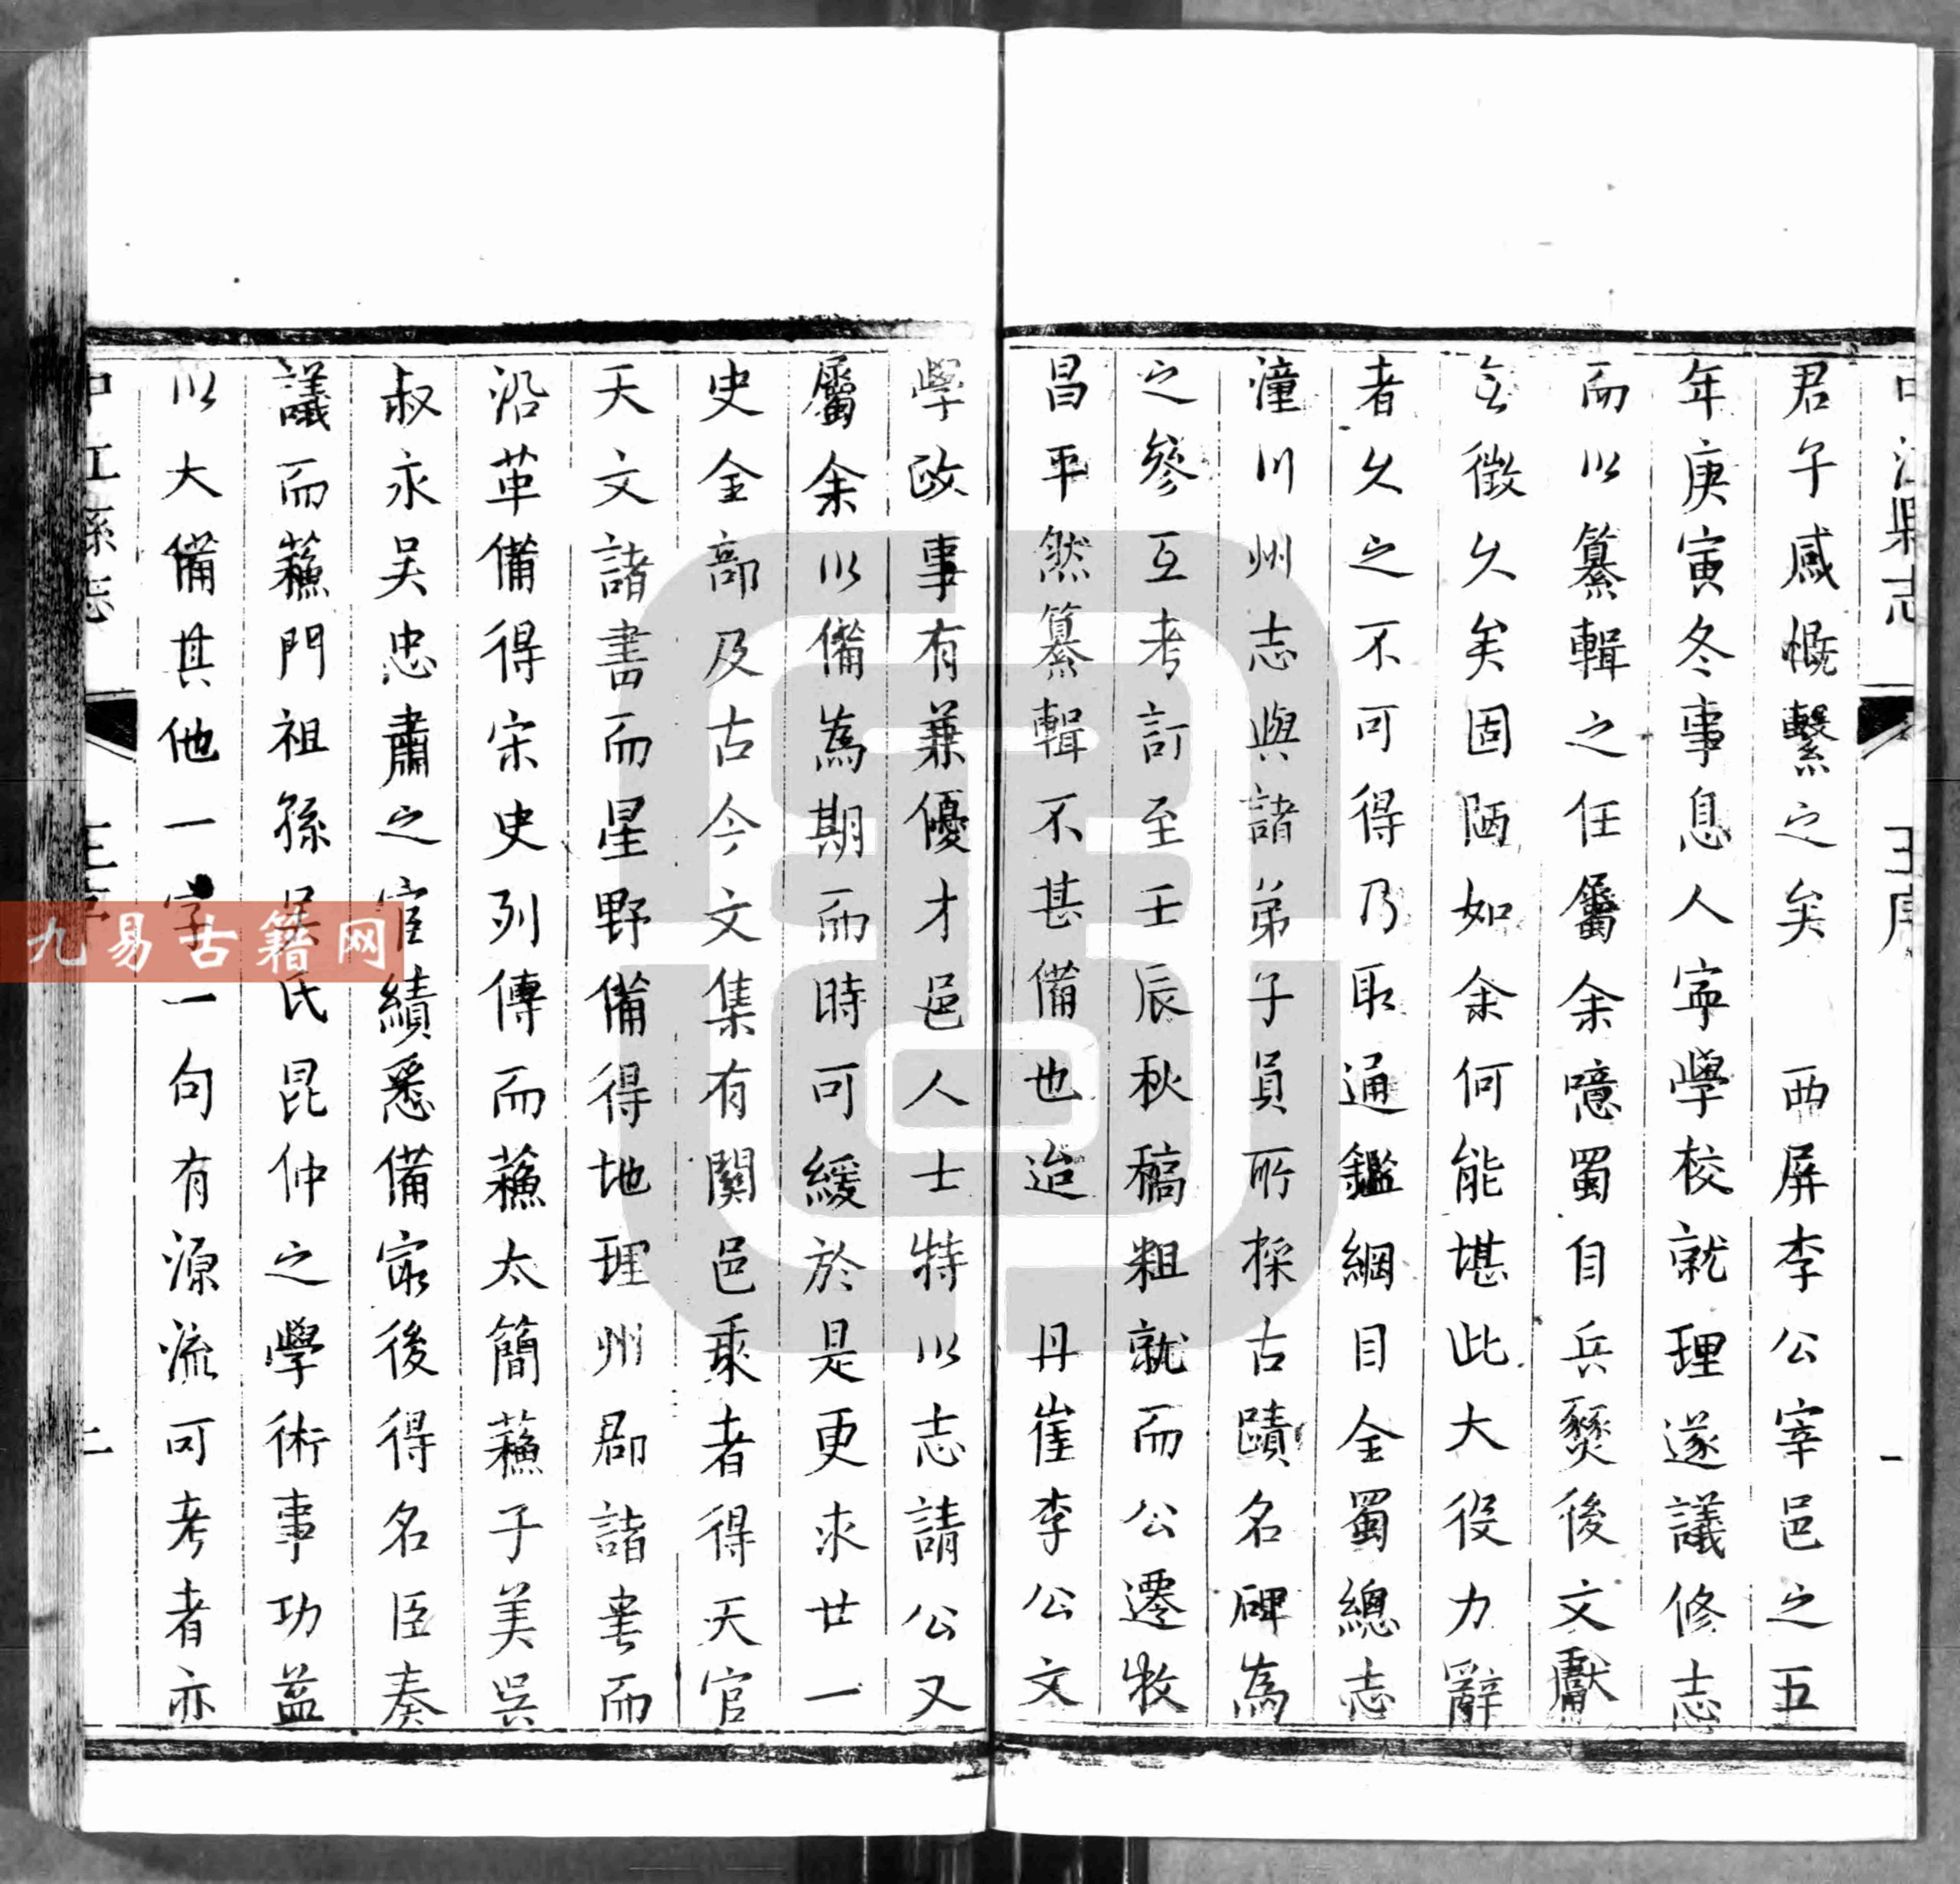 中江縣志
王序
一
君子感慨繫之矣　西屏李公宰邑之五
年庚寅冬事息人寧學校就理遂議修志
而以纂輯之任屬余噫蜀自兵燹後文獻
無徵久矣固陋如余何能堪此大役力辭
者久之不可得乃取通鑑綱目全蜀總志
潼川州志與諸弟子員所採古蹟名碑為
之參互考訂至壬辰秋稿粗就而公遷牧
昌平然纂輯不甚備也迨　丹崖李公文
學政事有兼優才邑人士特以志請公又
屬余以備為期而時可緩於是更求廿一
史全部及古今文集有關邑乘者得天官
天文諸書而星野備得地理州郡諸書而
沿革備得宋史列傳而蘓太簡蘓子美吳
叔永吳忠肅之宦績悉備宷後得名臣奏
議而蘓門祖孫吳氏昆仲之學術事功益
以大備其他一字一句有源流可考者亦
中江縣志
王序
二
九易古籍网